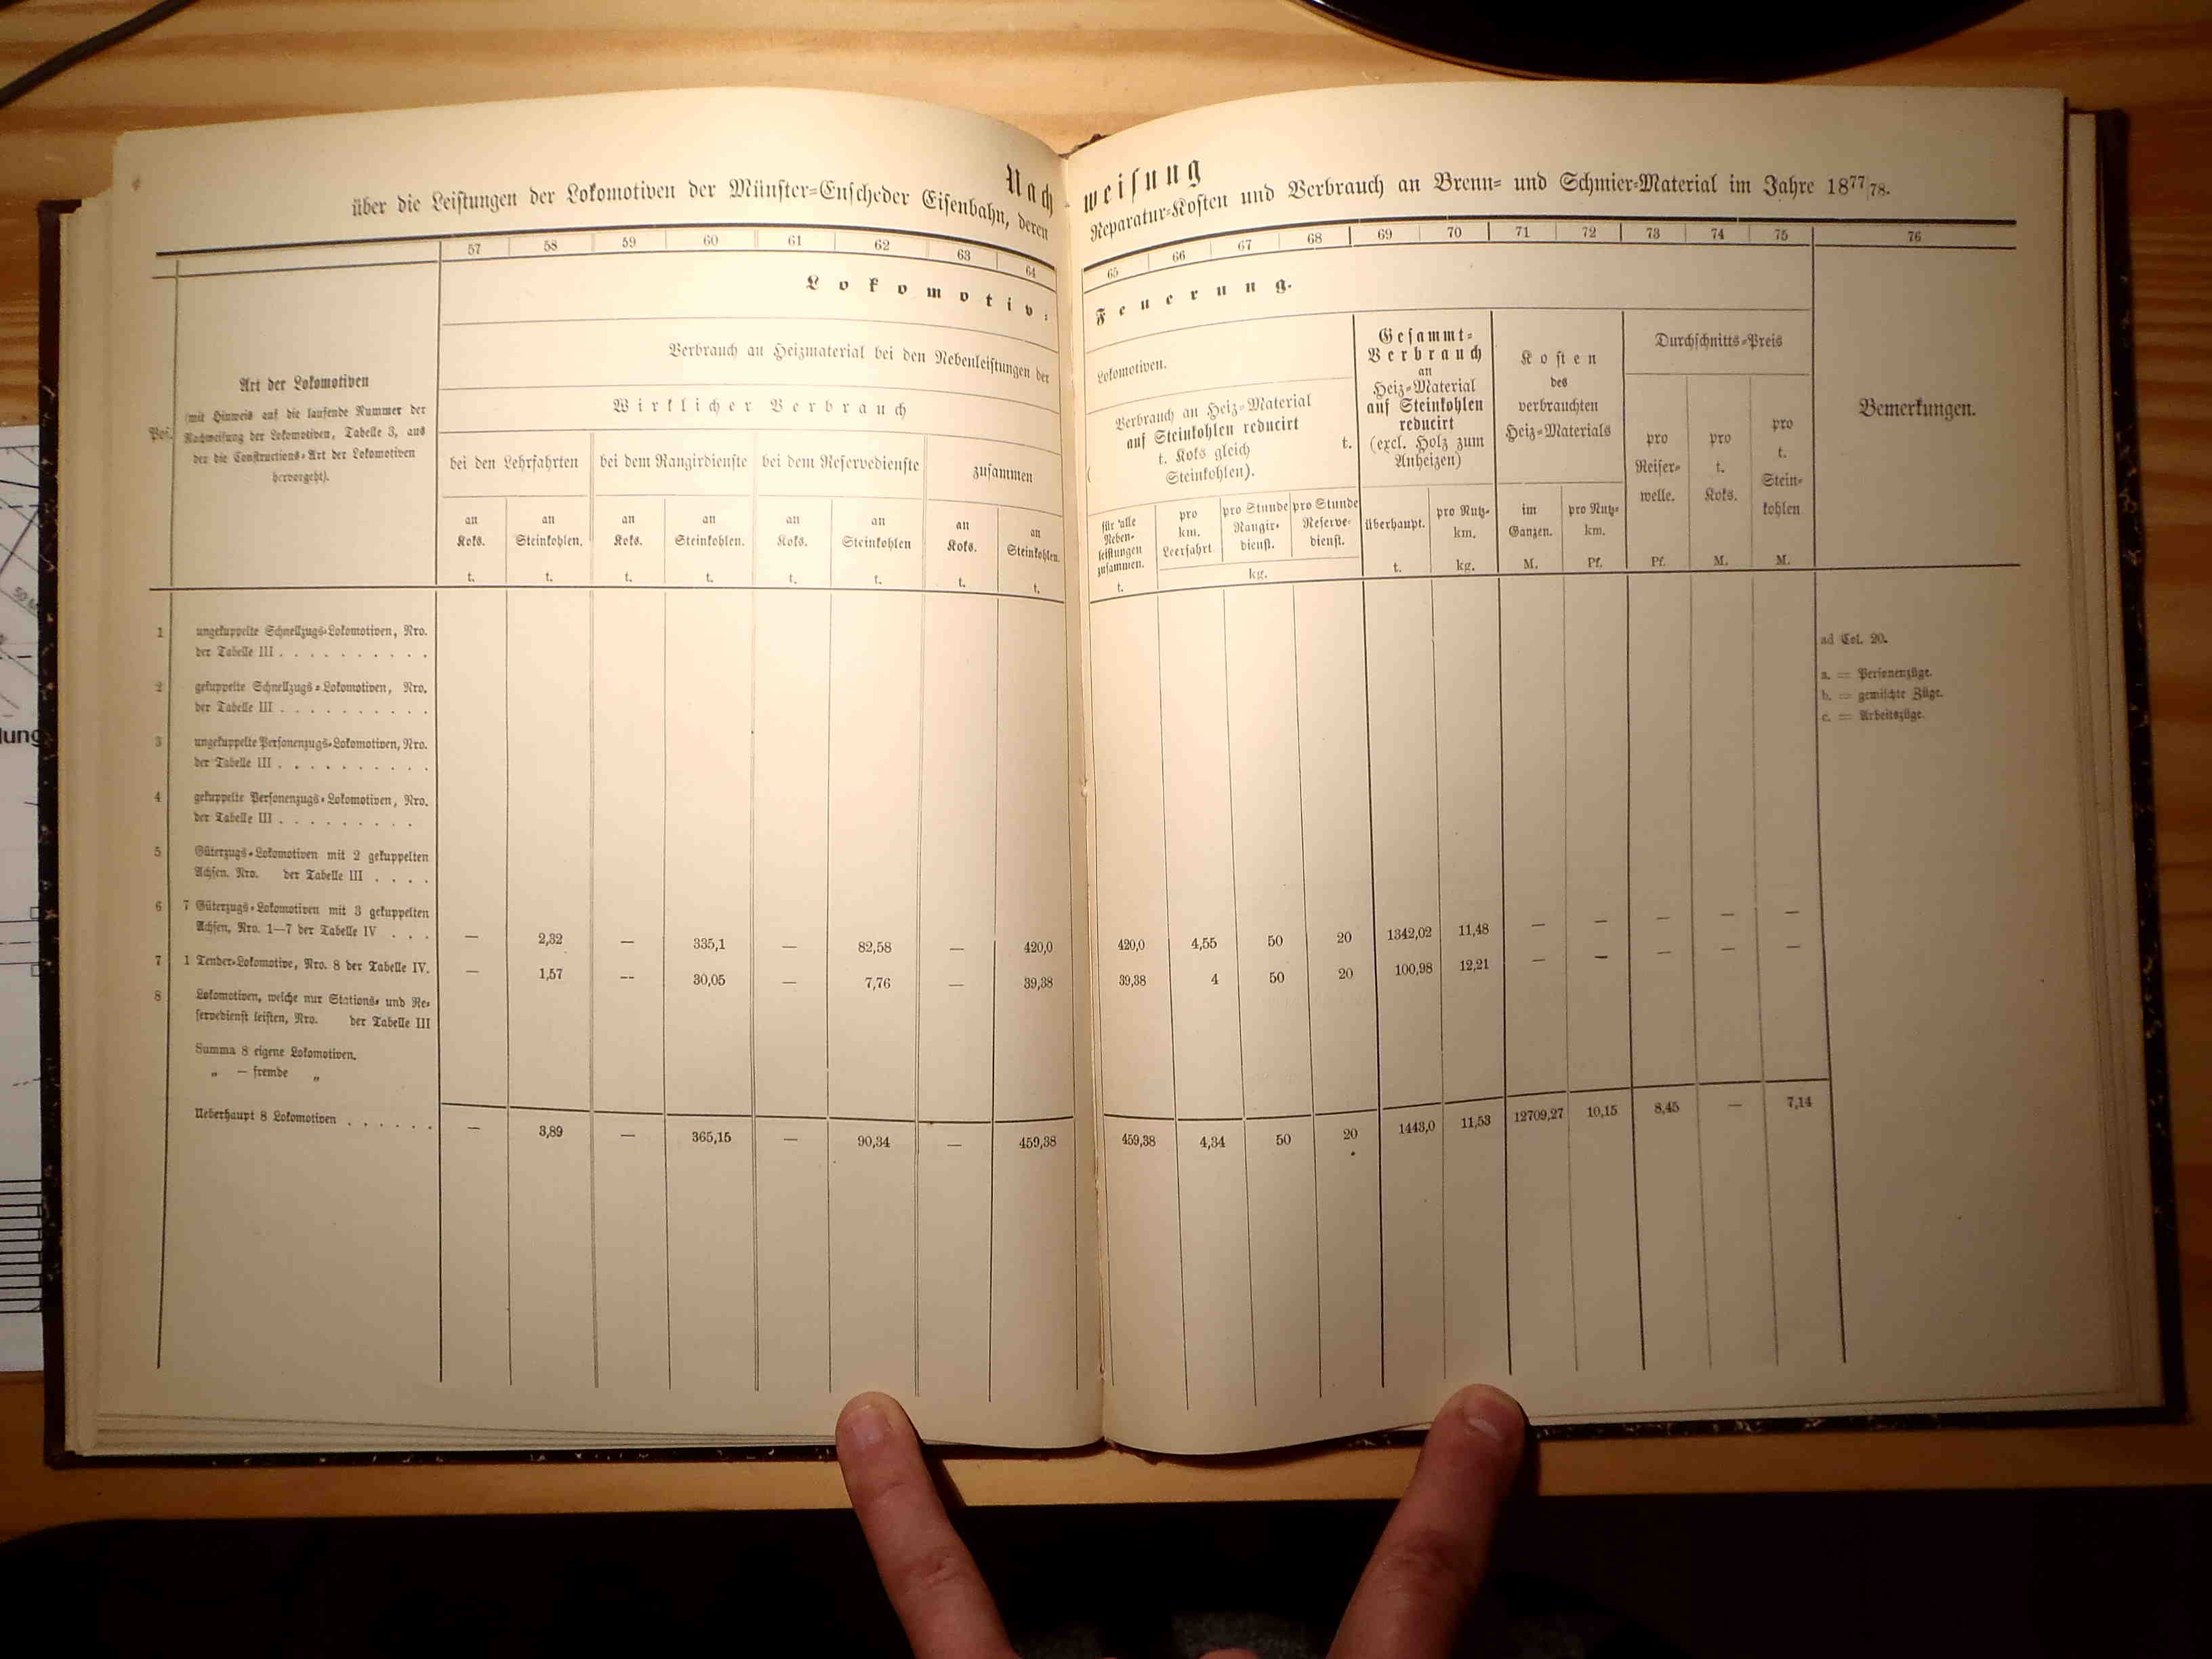 Nachweisung
über die Leistungen der Lokomotiven der Münster-Enscheder Eisenbahn, deren Reparatur-Kosten und Verbrauch an Brenn- und Schmier-Material im Jahre 1877/78.
57 58 59 60 61 62 63 64 65 66 67 68 69 70 71 72 73 74 75 76
Lokomotiv-Feuerung.
Pos.
Art der Lokomotiven
(mit Hinweis auf die laufende Nummer der
Nachweisung der Lokomotiven, Tabelle 3, aus
der die Constructions-Art der Lokomotiven
hervorgeht).
Verbrauch an Heizmaterial bei den Nebenleistungen der Lokomotiven.
Wirklicher Verbrauch
bei den Lehrfahrten
bei dem Rangirdienste
bei dem Reservedienste
zusammen
an Koks.
t.
an Steinkohlen.
t.
an Koks.
t.
an Steinkohlen.
t.
an Koks.
t.
an Steinkohlen
t.
an Koks.
t.
an Steinkohlen.
t.
Verbrauch an Heiz-Material
auf Steinkohlen reducirt
( t. Koks gleich t.
Steinkohlen).
für alle
Neben-
leistungen
zusammen.
t.
pro
km.
Leerfahrt
pro Stunde
Rangir-
dienst.
pro Stunde
Reserve-
dienst.
kg.
Gesammt-
Verbrauch
an
Heiz-Material
auf Steinkohlen
reducirt
(excl. Holz zum
Anheizen)
überhaupt.
t.
pro Nutz-
km.
kg.
Kosten
des
verbrauchten
Heiz-Materials
im
Ganzen.
M.
pro Nutz-
km.
Pf.
Durchschnitts-Preis
pro
Reiser-
welle.
Pf.
pro
t.
Koks.
M.
pro
t.
Stein-
kohlen
M.
Bemerkungen.
1 ungekuppelte Schnellzugs-Lokomotiven, Nro.
der Tabelle III . . . . . . . . . .
2 gekuppelte Schnellzugs-Lokomotiven, Nro.
der Tabelle III . . . . . . . . . .
3 ungekuppelte Personenzugs-Lokomotiven, Nro.
der Tabelle III . . . . . . . . . .
4 gekuppelte Personenzugs-Lokomotiven, Nro.
der Tabelle III . . . . . . . . .
5 Güterzugs-Lokomotiven mit 2 gekuppelten
Achsen, Nro. der Tabelle III . . . .
6 7 Güterzugs-Lokomotiven mit 3 gekuppelten
Achsen, Nro. 1—7 der Tabelle IV . . . — 2,32 — 335,1 — 82,58 — 420,0 420,0 4,55 50 20 1342,02 11,48 — — — — —
7 1 Tender-Lokomotive, Nro. 8 der Tabelle IV. — 1,57 -- 30,05 — 7,76 — 39,38 39,38 4 50 20 100,98 12,21 — — — — —
8 Lokomotiven, welche nur Stations- und Re-
servedienst leisten, Nro. der Tabelle III
Summa 8 eigene Lokomotiven.
„ — fremde „
Ueberhaupt 8 Lokomotiven . . . . . . — 3,89 — 365,15 — 90,34 — 459,38 459,38 4,34 50 20 1443,0 11,53 12709,27 10,15 8,45 — 7,14
ad Col. 20.
a. = Personenzüge.
b. = gemischte Züge.
c. = Arbeitszüge.
lung